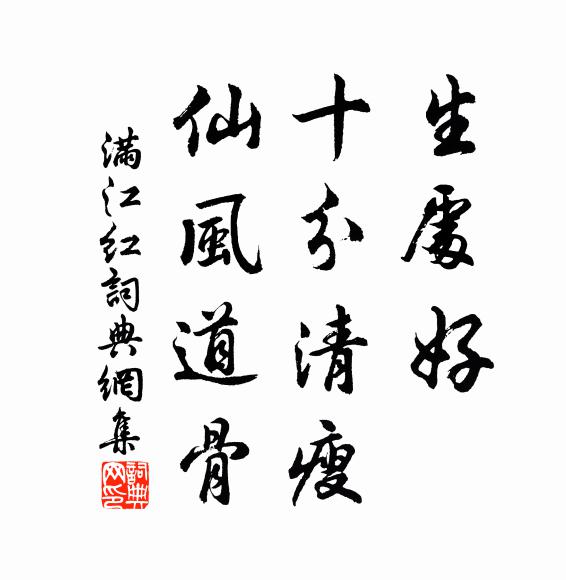 生處好
十分清瘦
仙風道骨
滿江紅詞典網集
詞典
网印